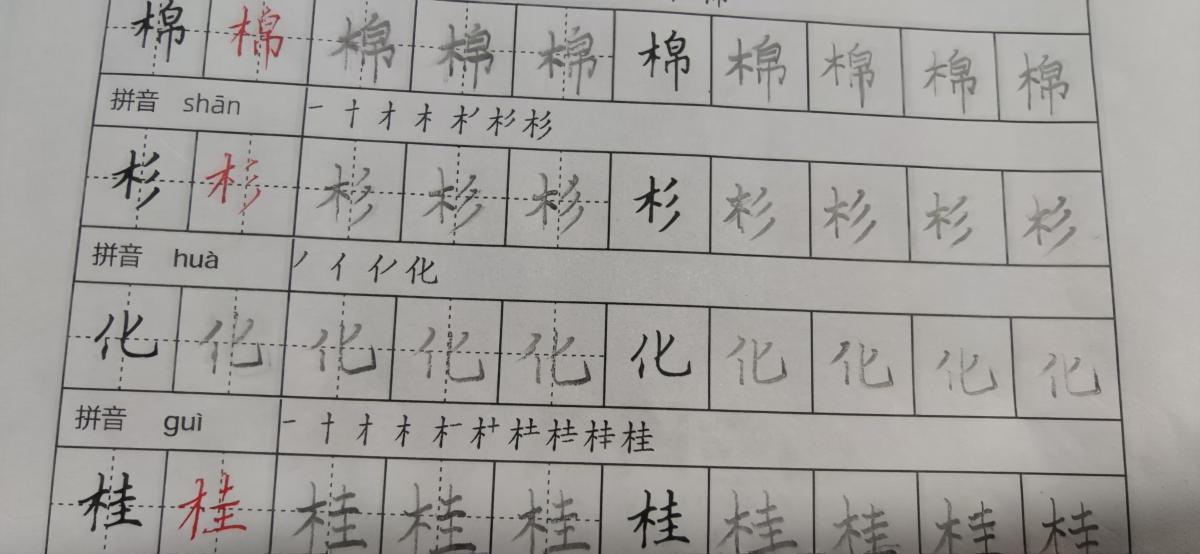 棉 棉 棉 棉 棉 棉 棉 棉 棉 棉
拼音 shān 一 十 才 木 杉 杉
杉 杉 杉 杉 杉 杉 杉 杉 杉 杉
拼音 huà 丿 亻 化
化 化 化 化 化 化 化 化 化 化
拼音 guì 一 十 才 木 桂
桂 桂 桂 桂 桂 桂 桂 桂 桂 桂